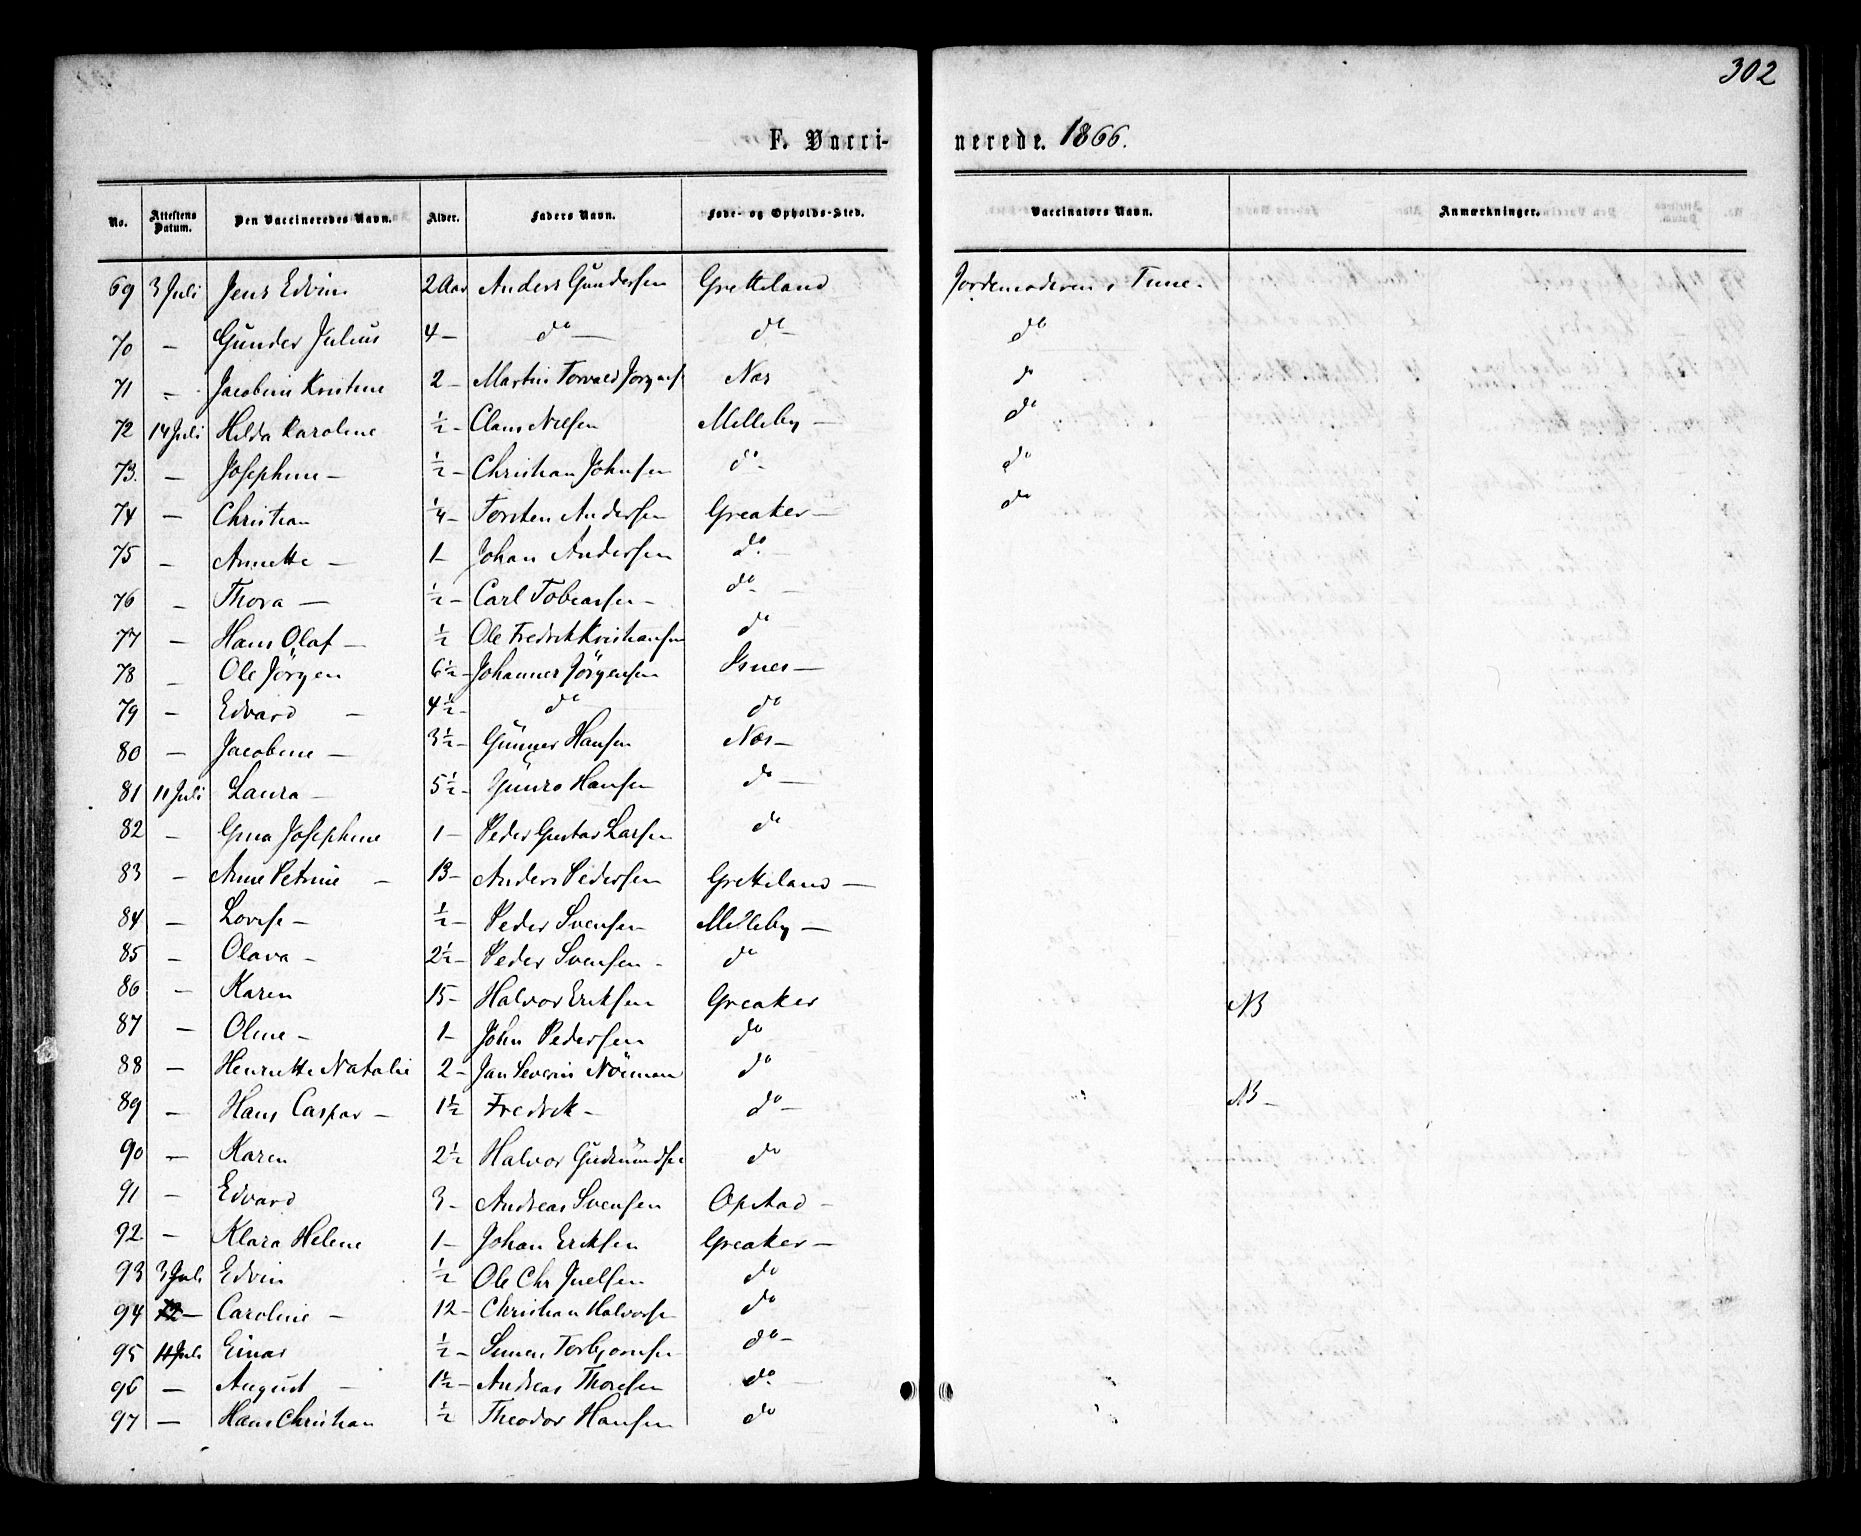 302
F. Vaccinerede. 1866.
No. Attestens Datum. Den Vaccineredes Navn. Alder. Faders Navn. Føde- og Opholds-Sted. Vaccinators Navn. Anmærkninger.
69 3 Juli Jens Edvin 2 Aar Anders Gundersen Gretteland Jordemoderen i Tune.
70 — Gunder Julius 4 — do — do — do
71 — Jacobine Kristine 2 — Martin Torvald Jørgens. Nes do
72 14 Juli Hilda Karoline ½ — Claus Nelsen Melleby — do
73. — Josephine — ½ — Christian Johnsen do — do
74 — Christian ¼ — Torsten Andersen Greaker — do
75 — Annette — 1 — Johan Andersen do. —
76 — Thora — ½ — Carl Tobiassen — do —
77 — Hans Olaf — ½ Ole Fredrik Kristiansen do —
78 — Ole Jörgen 6½ — Johannes Jörgensen Isnes —
79 — Edvard — 4½ — do do
80 — Jacobine — 3½ — Günner Hansen Nes —
81 11 Juli Laura — 5½ — Hansen do —
82 — Gina Josephine 1 — Peder Gustav Larsen do
83 — Anne Petrine — 13 — Anders Pedersen Gretteland —
84 — Lovise — ½ — Peder Svensen Melleby —
85 — Olava — 2½ — Peder Svensen — do
86 — Karen 15 — Halvor Eriksen Greaker NB
87 — Oline — 1 — John Pedersen do
88 — Henriette Natalie 2 — Jan Severin do
89 — Hans Caspar — 1½ Fredrik — do — NB —
90 — Karen 2½ Halvor Gudmündse do
91 — Edvard 3 — Andreas Svensen Opstad —
92 — Klara Helene 1 — Johan Eriksen Greaker —
93 3 Juli Edvin ½ Ole Chr Juelsen do
94 — Caroline — 12 — Christian Halvorse do
95 11 Juli Einar ½ — Simen Torbjornsen do —
96 — August — 1½ — Andreas Thoresen do.
97 — Hans Christian ½ Theodor Hansen do